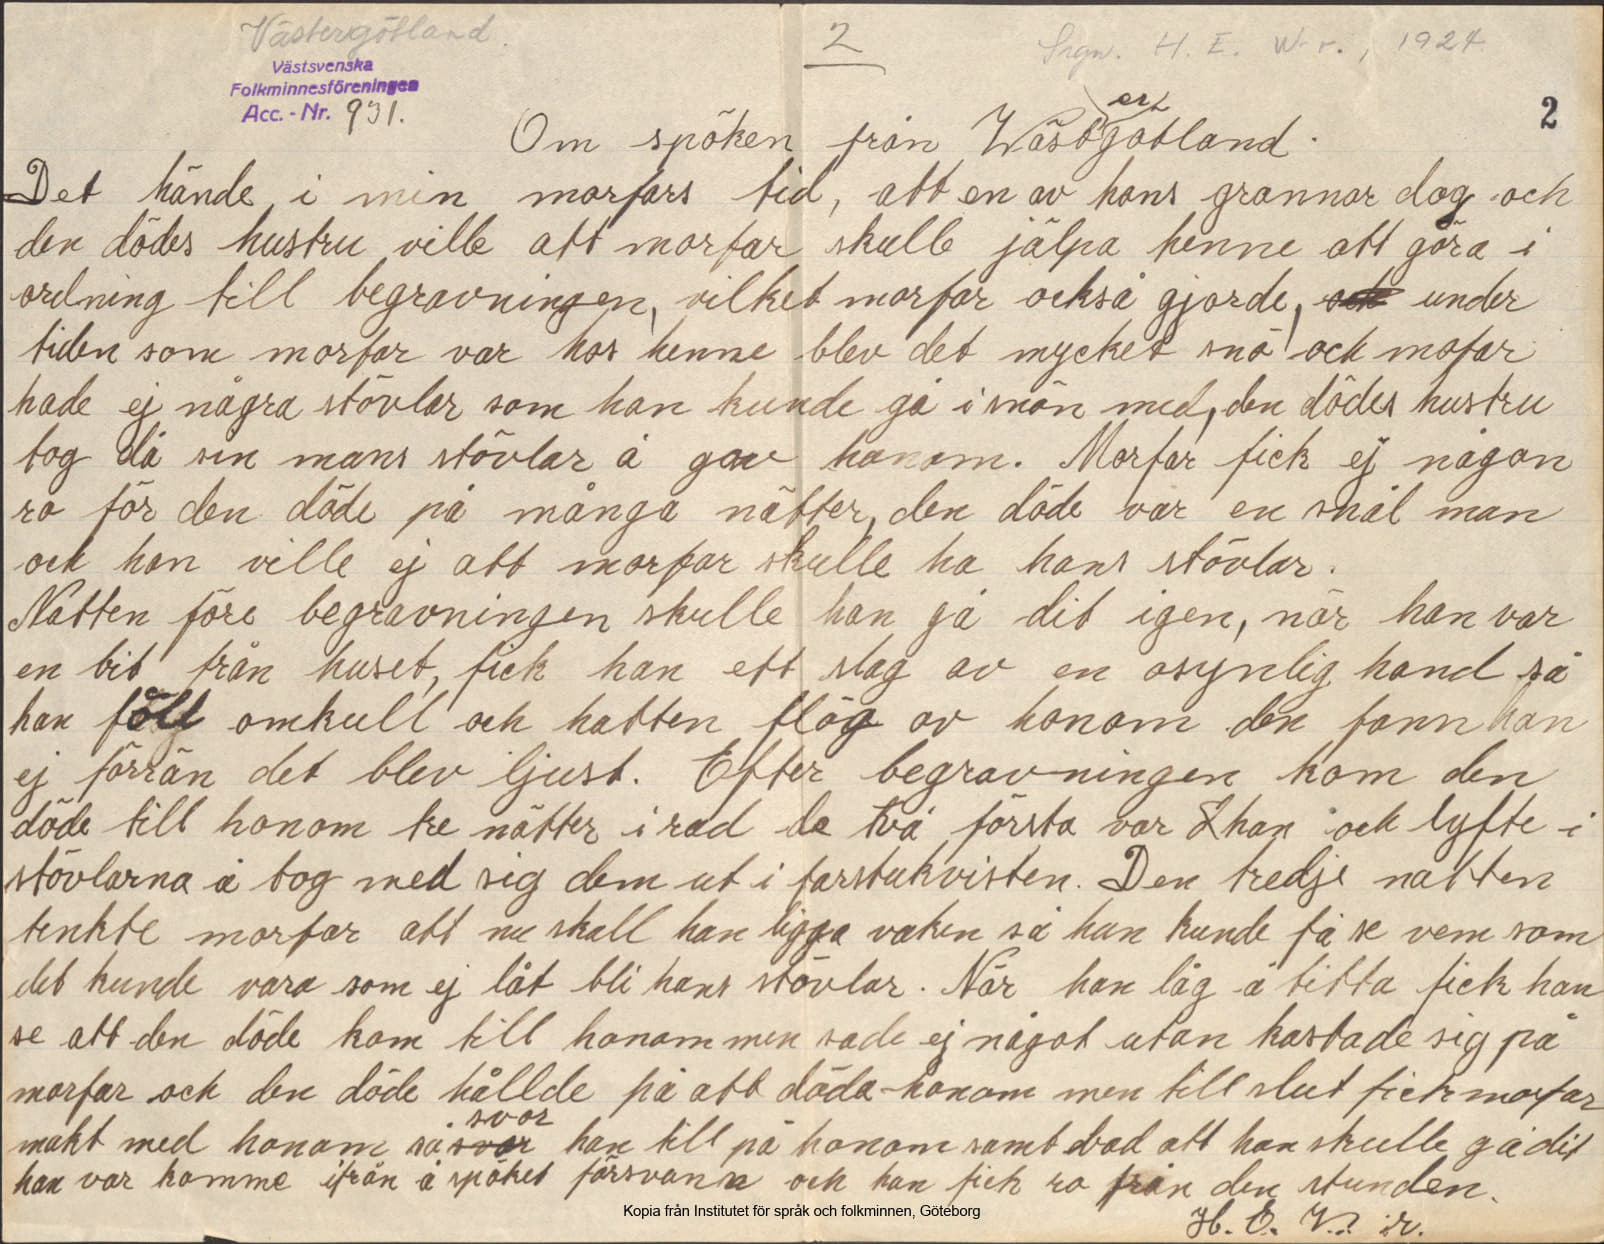 Västergötland.
2
Sign. H. E. W-r., 1924.
Västsvenska
Folkminnesföreningen
Acc. - Nr. 931.
2
er
Om spöken från Wästgötland.
Det hände i min morfars tid, att en av hans grannar dog och
den dödes hustru ville att morfar skulle jälpa henne att göra i
ordning till begravningen, vilket morfar också gjorde, och under
tiden som morfar var hos henne blev det mycket snö och mofar
hade ej några stövlar som han kunde gå i snön med, den dödes hustru
tog då sin mans stövlar å gav honom. Morfar fick ej någon
ro för den döde på många nätter, den döde var en snål man
och han ville ej att morfar skulle ha hans stövlar.
Natten före begravningen skulle han gå dit igen, när han var
en bit från huset, fick han ett slag av en osynlig hand så
han föll omkull och hatten flög av honom den fann han
ej förrän det blev ljust. Efter begravningen kom den
döde till honom tre nätter i rad de två första var han och lyfte i
stövlarna å tog med sig dem ut i farstukvisten. Den tredje natten
tenkte morfar att nu skall han ligga vaken så han kunde få se vem som
det kunde vara som ej låt bli hans stövlar. När han låg å titta fick han
se att den döde kom till honom men sade ej något utan kastade sig på
morfar och den döde hållde på att döda honom men till slut fick morfar
svor
makt med honom så svor han till på honom samt bad att han skulle gå dit
han var komme ifrån å spöket försvann och han fick ro från den stunden.
H. E. W. r.
Kopia från Institutet för språk och folkminnen, Göteborg